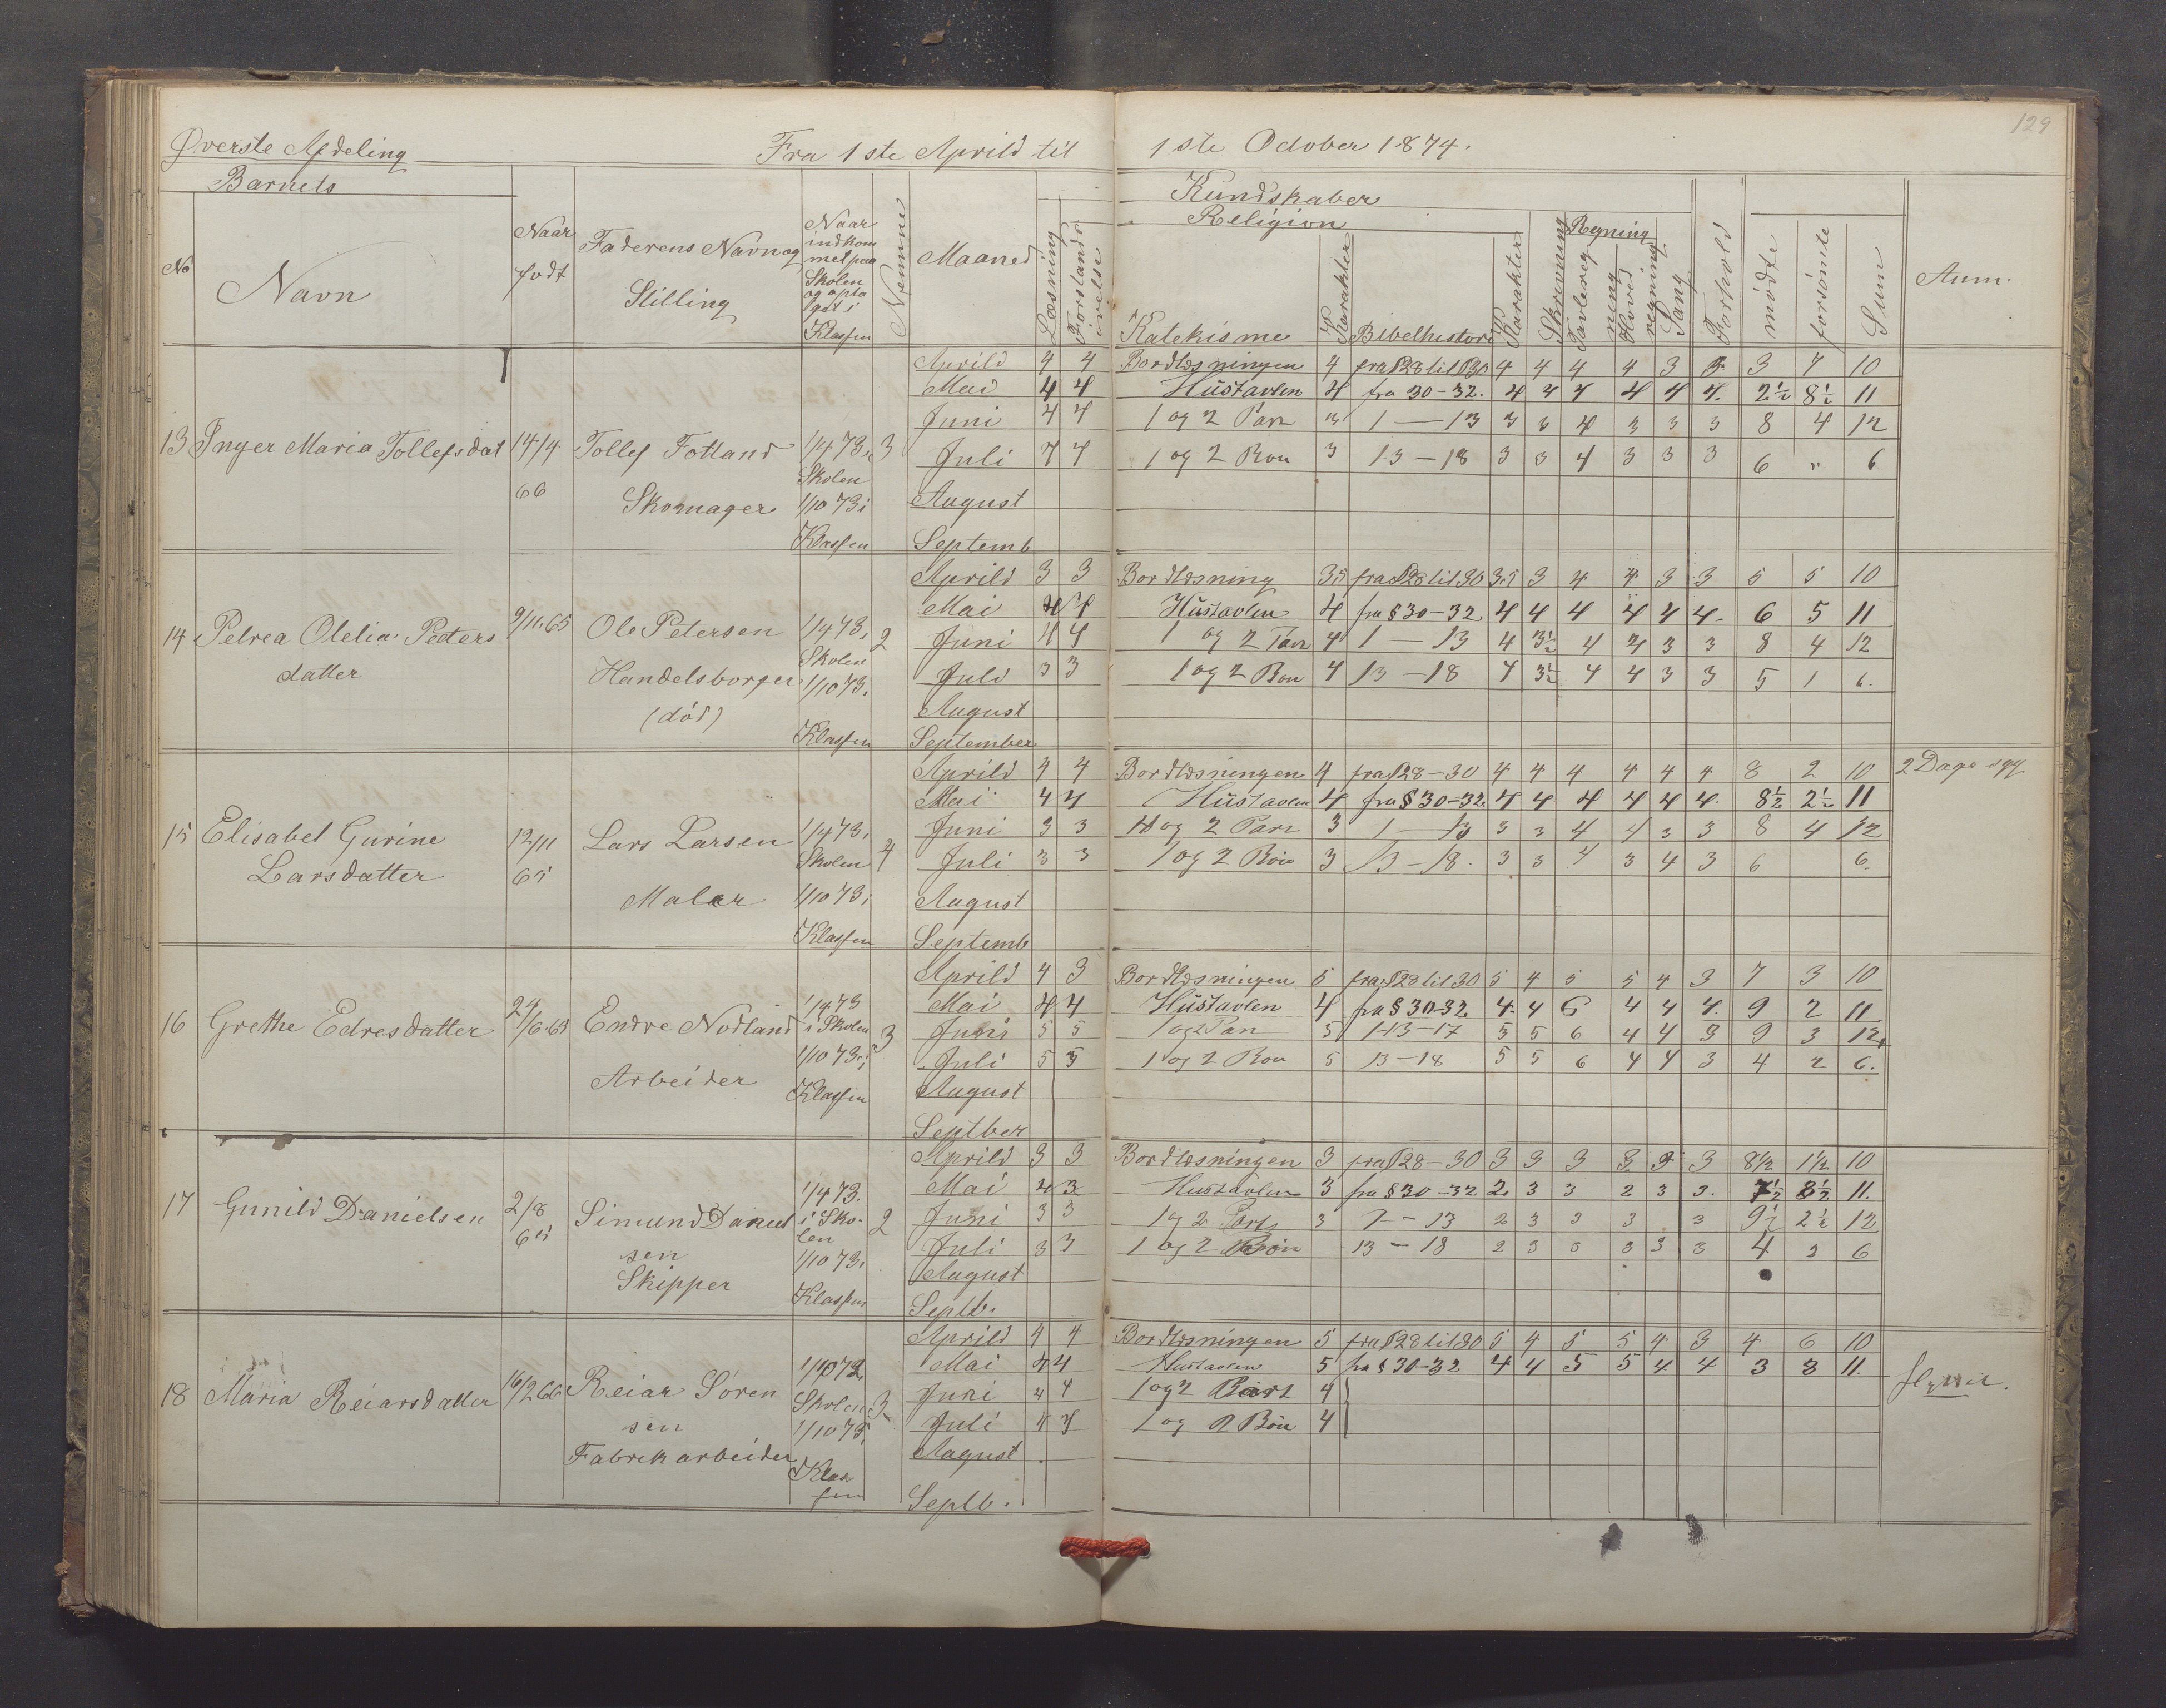 129
Øverste Afdeling Fra 1ste Aprild til 1ste October 1874.
Barnets Kundskaber
Religion Regning
No Navn Naar født Faderens Navn og Stilling Naar indkommet paa Skolen og optaget i Klassen Nemme Maaned Læsning Forstandsøvelse Katekisme Karakter Bibelhistori Karakter Skrivning Tavleregning Hovedregning Sang Forhold mödte forsömte Sum Anm.
Aprild 4 4 Bordlæsningen 4 fra §28 til §30 4 4 4 4 3 3 3 7 10
Mai 4 4 Hüstavlen 4 fra 30-32. 4 4 4 4 4 4. 2½ 8½ 11
Juni 4 4 1 og 2 Part 3 1 — 13 3 3 4 3 3 3 8 4 12
13 Inger Maria Tollefsdat 14/4 66 Tollef Fotland Skomager 1/4 73, Skolen 1/10 73 i Klassen 3
Juli 4 4 1 og 2 Bøn 3 13 - 18 3 3 4 3 3 3 6 " 6
August
Septemb
Aprild 3 3 Bordlæsning 3.5 fra §28 til 30 3.5 3 4 4 3 3 5 5 10
Mai 4 4 Hüstavlen 4 fra § 30-32 4 4 4 4 4 4. 6 5 11
14 Petrea Olelia Peters datter 9/11.65 Ole Petersen Handelsborger (död) 1/4 73, Skolen 1/10 73, Klassen 2
Juni 4 4 1 og 2 Part 4 1 — 13 4 3½ 4 4 3 3 8 4 12
Juli 3 3 1 og 2 Bøn 4 13 - 18 4 3½ 4 4 3 3 5 1 6.
August
September
Aprild 4 4 Bordlæsningen 4 fra §28 - 30 4 4 4 4 4 4 8 2 10 2 Dage syg
Mai 4 4 Hüstavlen 4 fra § 30-32. 4 4 4 4 4 4. 8½ 2½ 11
15 Elisabet Gurine Larsdatter 12/11 65 Lars Larsen Maler 1/4 73, Skolen 1/10 73, Klassen 4
Juni 3 3 1 og 2 Part 3 1 — 13 3 3 4 4 3 3 8 4 12
Juli 3 3 1 og 2 Bön 3 13 - 18. 3 3 4 3 4 3 6 6.
August
Septemb
Aprild 4 3 Bordlæsningen 5 fra §28 til 30 5 4 5 5 4 3 7 3 10
Mai 4 4 Hüstavlen 4 fra § 30-32. 4. 4 6 4 4 4. 9 2 11
16 Grethe Edresdatter 24/6.63 Endre Nodland Arbeider 1/4 73 i Skolen 1/10 73, i Klassen 3
Juni 5 5 1 og 2 Part 5 1-13-17 5 5 6 4 4 3 9 3 12
Juli 5 5 1 og 2 Bøn 5 13 - 18 5 5 6 4 4 3 4 2 6.
August
Septber
Aprild 3 3 Bordlæsningen 3 fra §28 - 30 3 3 3 3 3 3 8½ 1½ 10
Mai 4 3 Hustavlen 3 fra § 30 - 32 2. 3 3 2 3 3. 7½ 3½ 11.
17 Gunild Danielsen 2/8 65 Simund Daniel sen Skipper 1/4 73. i Skolen 1/10 73, Klassen 2
Juni 3 3 1 og 2 Part 3 7 - 13 2 3 3 3 3 9½ 2½ 12
Juli 3 3 1 og 2 Bön 13 - 18 2 3 3 3 3 3 4 2 6
August
Septb.
Aprild 4 4 Bordlæsningen 5 fra §28 til 30 5 4 5 5 4 3 4 6 10
Mai 4 4 Hustavlen 5 fra § 30-32 4 4 5 5 4 4 3 8 11. flyttet.
18 Maria Reiarsdatter 16/2 66 Reiar Sören sen Fabrikarbeider 1/10 72 Skolen 1/10 73, Klassen 3
Juni 4 4 1 og 2 Part 4
Juli 4 4 1 og 2 Bön 4
August
Septb.